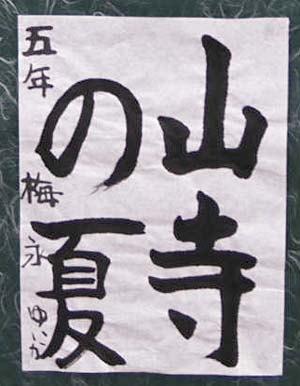 山寺
の夏
五年 梅永 ゆいか